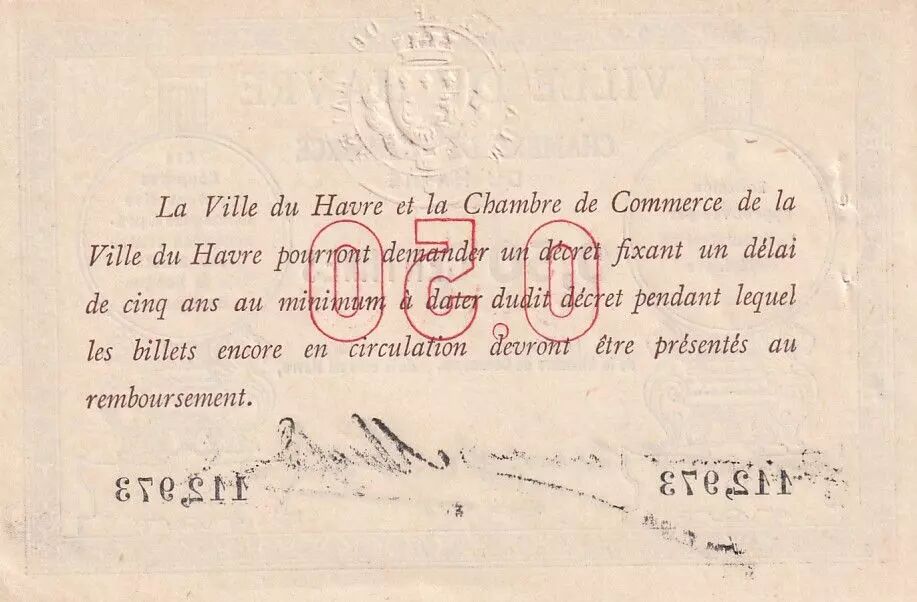 VILLE DU HAVRE
CHAMBRE DE COMMERCE
La Ville du Havre et la Chambre de Commerce de la
Ville du Havre pourront demander un décret fixant un délai
de cinq ans au minimum à dater dudit décret pendant lequel
les billets encore en circulation devront être présentés au
remboursement.
0,50
112,973
112,973